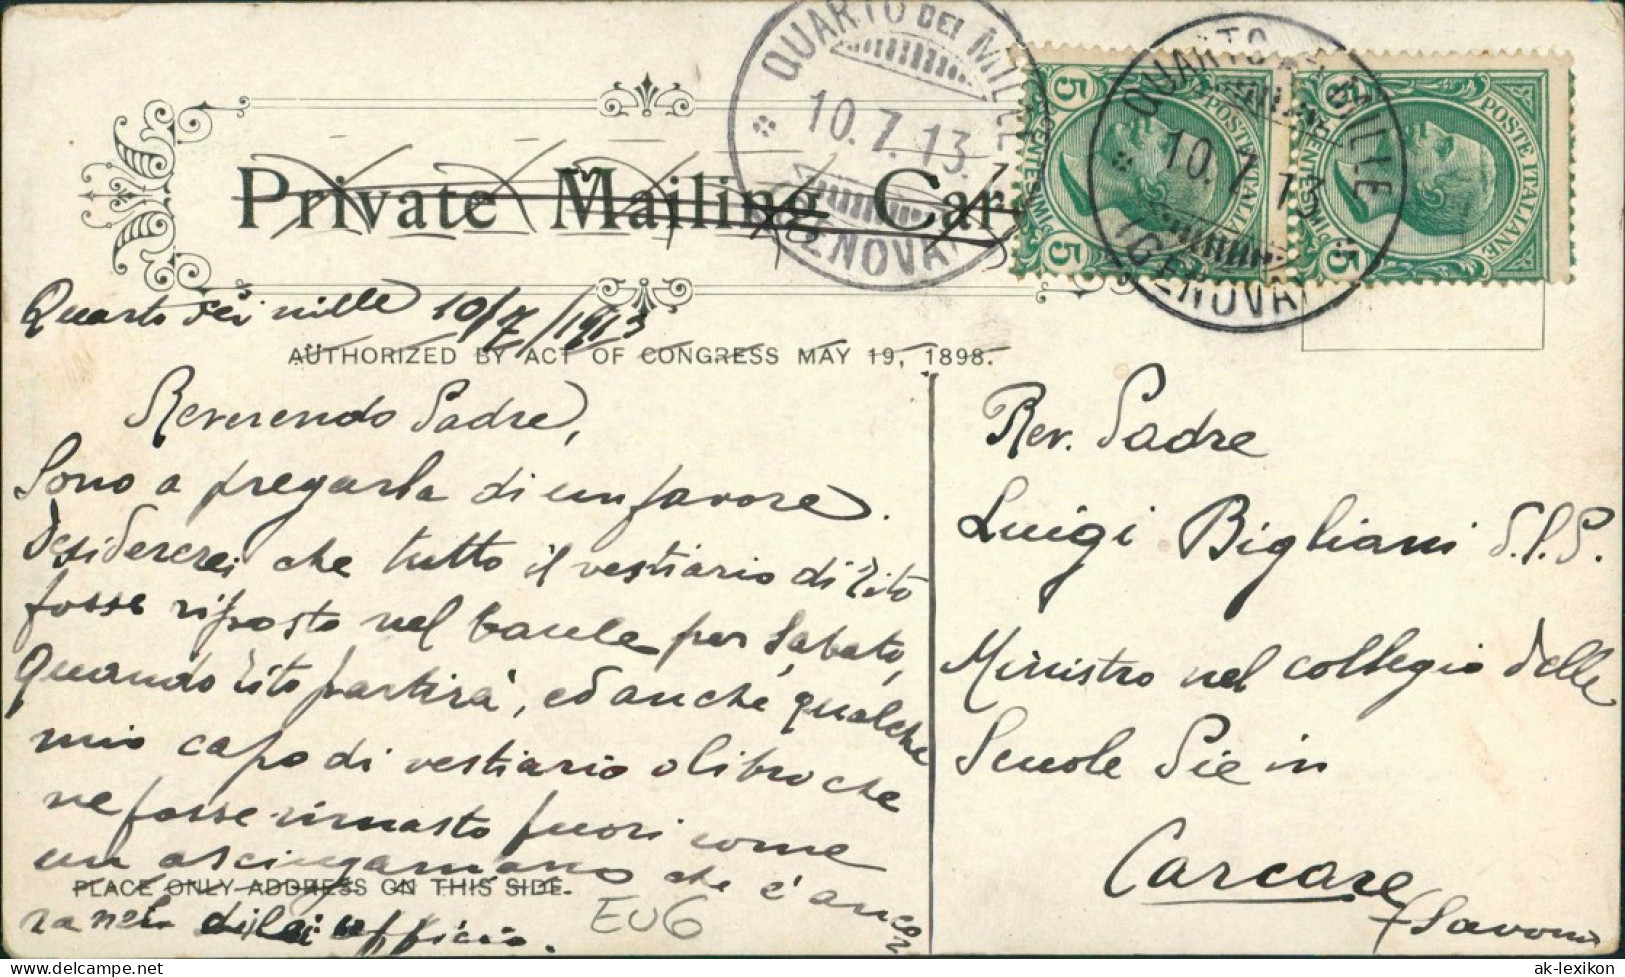 QUARTO DEI MILLE
10.7.13
(GENOVA)
QUARTO DEI MILLE
10.7.13
(GENOVA)
5 CENTESIMI 5
POSTE ITALIANE
5 CENTESIMI 5
POSTE ITALIANE
Private Mailing Car
AUTHORIZED BY ACT OF CONGRESS MAY 19, 1898.
Quarto dei mille 10/7/1913
Reverendo Padre,
Sono a pregarla di un favore.
Desidererei che tutto il vestiario di Tito
fosse riposto nel baule per Sabato,
quando Tito partirà, ed anche qualche
mio capo di vestiario o libro che
ne fosse rimasto fuori come
un asciugamano che è anco
ra nel di lei ufficio.
PLACE ONLY ADDRESS ON THIS SIDE.
EU6
Rev. Padre
Luigi Bigliani S.P.
Ministro nel collegio delle
Scuole Pie in
Carcare
(Savona
ak-lexikon